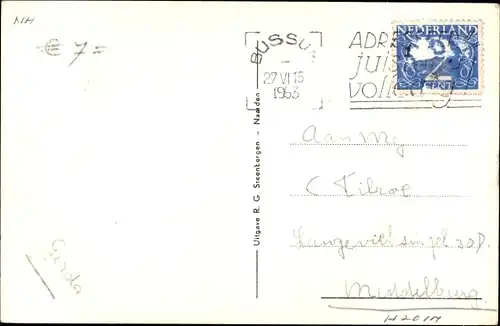 NH
€ 7=
BUSSU
27 VI 15
1953
ADR
juis
voll
NEDERLAND
2
CENT
Uitgave R. G. Steenbergen - Naarden
Aan Mej
C Tilroe
Langeviele singel 30D.
Middelburg
Gerda